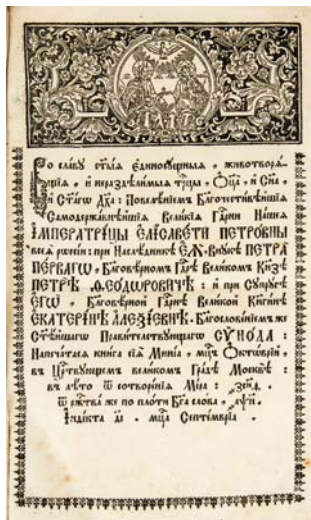 Во славу ст҃ыѧ єдиносꙋщныѧ, животворѧ-
щіѧ, и нераздѣлимыѧ трⷪ҇цы, Ѻц҃а, и Сн҃а,
и Ст҃агѡ Дх҃а: Повелѣнїемъ Благочестивѣйшїѧ
Самодержавнѣйшїѧ Великїѧ Гдⷭ҇рни Нашеѧ
ІМПЕРАТРИЦЫ ЕЛІСАВЕТИ ПЕТРОВНЫ
всеѧ рѡссїи: при Наслѣдникѣ ЕѦ, Внꙋкѣ ПЕТРА
ПЕРВАГѠ, Благовѣрномъ Гдⷭ҇рѣ Великомъ Кнз҃ѣ
ПЕТРѢ ѲЕОДѠРОВИЧѢ: и при Сꙋпрꙋгѣ
ЕГѠ, Благовѣрной Гдⷭ҇рнѣ Великой Кнгинѣ
ЕКАТЕРІНѢ АЛЕѮІЕВНѢ. Благословїемъ же
Ст҃ѣйшагѡ Правителствꙋющагѡ СѴНОДА:
Напечатасѧ книга сїѧ Минїа, мцⷭ҇ъ Октѡврїй,
въ Црⷭ҇твꙋющемъ великомъ Градѣ Москвѣ:
въ лѣто ѿ сотворенїѧ Міра:
ѿ рж҃тва же по плоти Бг҃а слова,
Індікта мцⷭ҇а Септемврїа.